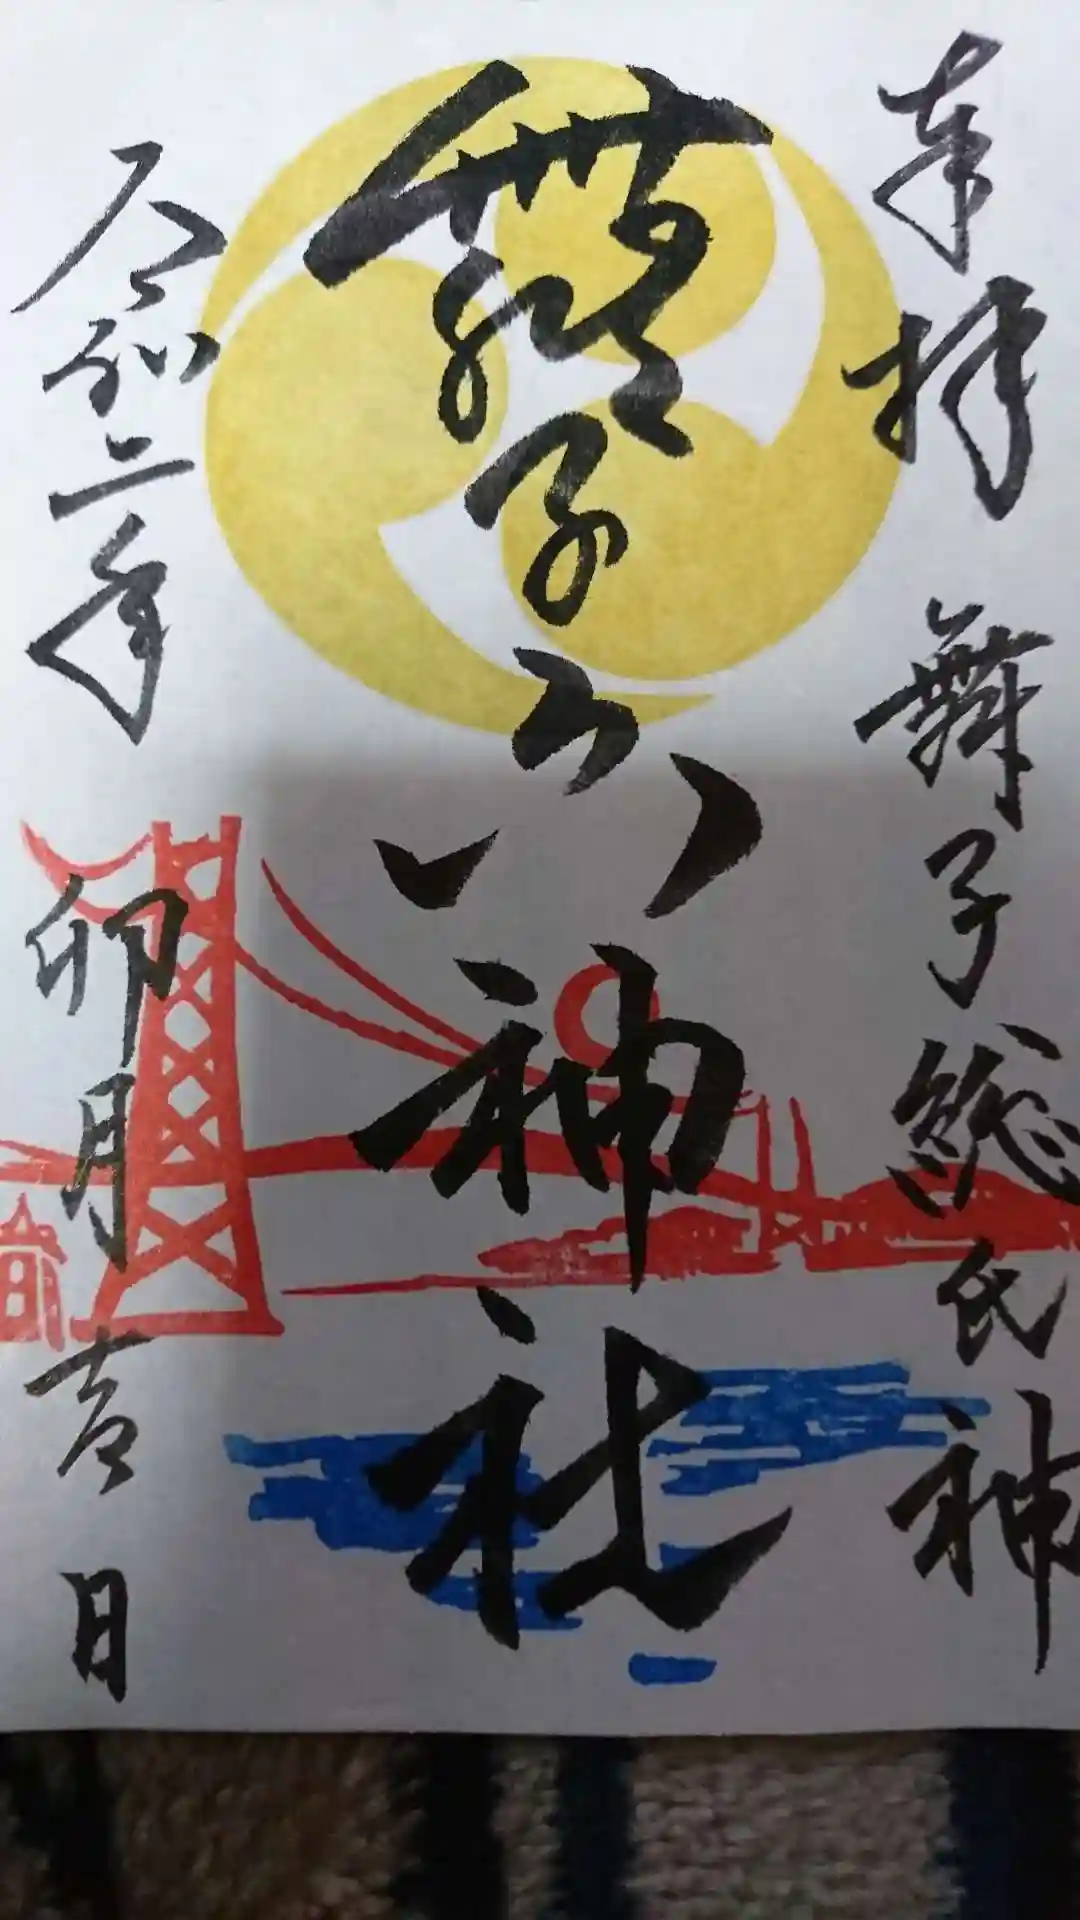 奉拝 舞子総氏神
舞子六神社
令和二年 卯月 吉日